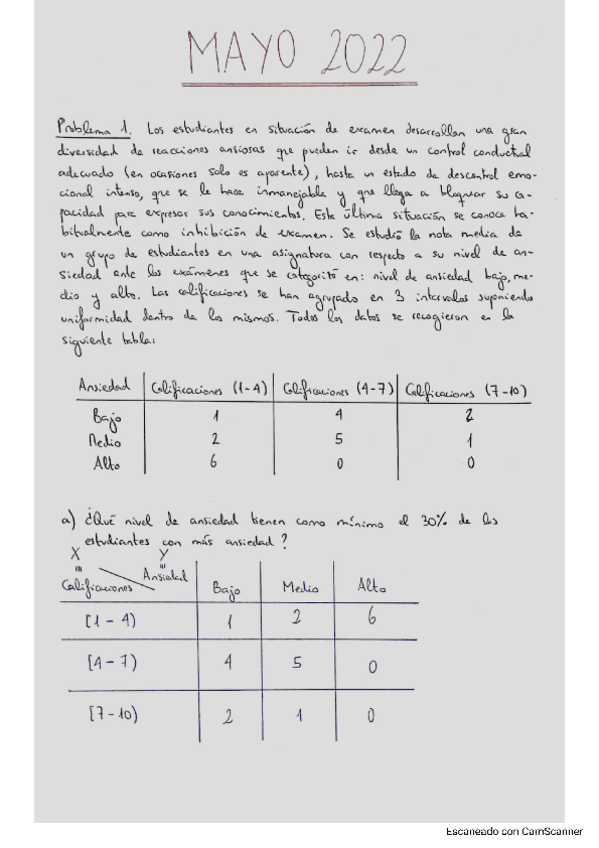 MAYO 2022
Problema 1. Los estudiantes en situación de examen desarrollan una gran
diversidad de reacciones ansiosas que pueden ir desde un control conductual
adecuado (en ocasiones solo es aparente), hasta un estado de descontrol emo-
cional intenso, que se le hace inmanejable y que llega a bloquear su ca-
pacidad para expresar sus conocimientos. Esta última situación se conoce ha-
bitualmente como inhibición de examen. Se estudió la nota media de
un grupo de estudiantes en una asignatura con respecto a su nivel de an-
siedad ante los exámenes que se categorizó en: nivel de ansiedad bajo, me-
dio y alto. Las calificaciones se han agrupado en 3 intervalos suponiendo
uniformidad dentro de los mismos. Todos los datos se recogieron en la
siguiente tabla:
Ansiedad Calificaciones (1-4) Calificaciones (4-7) Calificaciones (7-10)
Bajo 1 4 2
Medio 2 5 1
Alto 6 0 0
a) ¿Qué nivel de ansiedad tienen como mínimo el 30% de los
estudiantes con más ansiedad?
X Y
Calificaciones Ansiedad Bajo Medio Alto
[1-4) 1 2 6
[4-7) 4 5 0
[7-10) 2 1 0
Escaneado con CamScanner